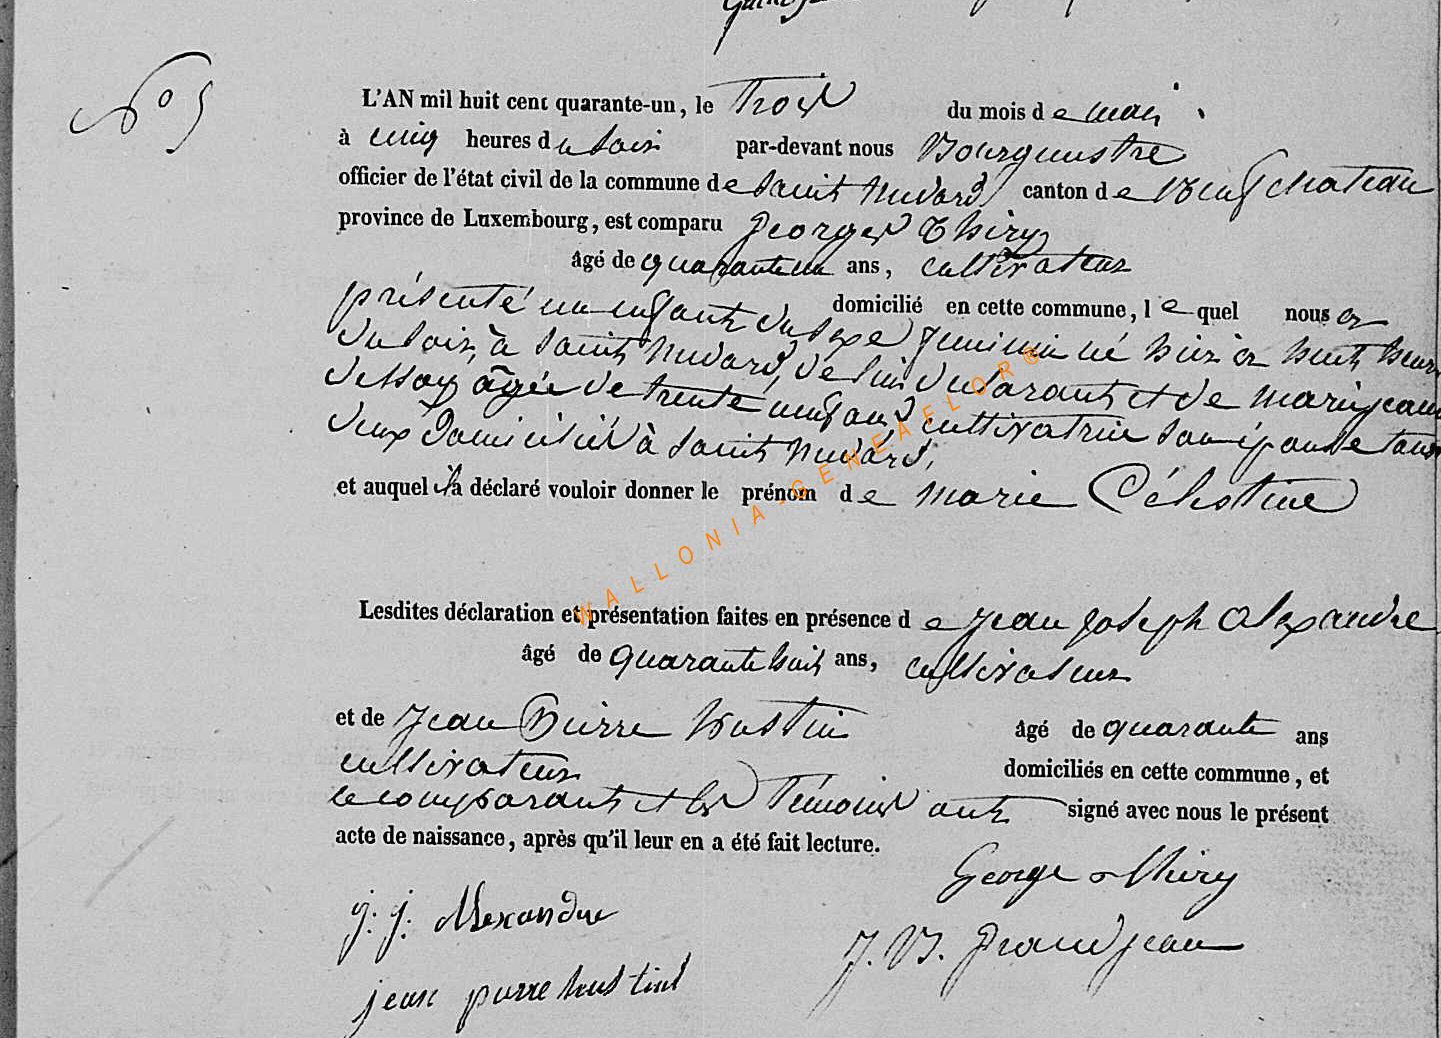 N° 5
L'AN mil huit cent quarante-un, le Trois du mois de mai
à cinq heures du soir par-devant nous Bourgmestre
officier de l'état civil de la commune de Saint Médard canton de Neufchateau
province de Luxembourg, est comparu Georges Thiry
âgé de quarante un ans, cultivateur
domicilié en cette commune, lequel nous a
présenté un enfant du sexe féminin né hier à huit heures
du soir, à Saint Médard, de lui déclarant et de marie jeanne
âgée de trente neuf ans cultivatrice son épouse tous
deux domiciliés à Saint Médard,
et auquel il a déclaré vouloir donner le prénom de Marie Célestine
Lesdites déclaration et présentation faites en présence de Jean joseph Alexandre
âgé de quarante huit ans, cultivateur
et de Jean Pierre hustin âgé de quarante ans
cultivateur domiciliés en cette commune, et
le comparant et les Témoins ont signé avec nous le présent
acte de naissance, après qu'il leur en a été fait lecture.
George Thiry
j. j. Alexandre
J. B. Grandjean
jean pierre hustin
WALLONIA-GENEAFLOR®